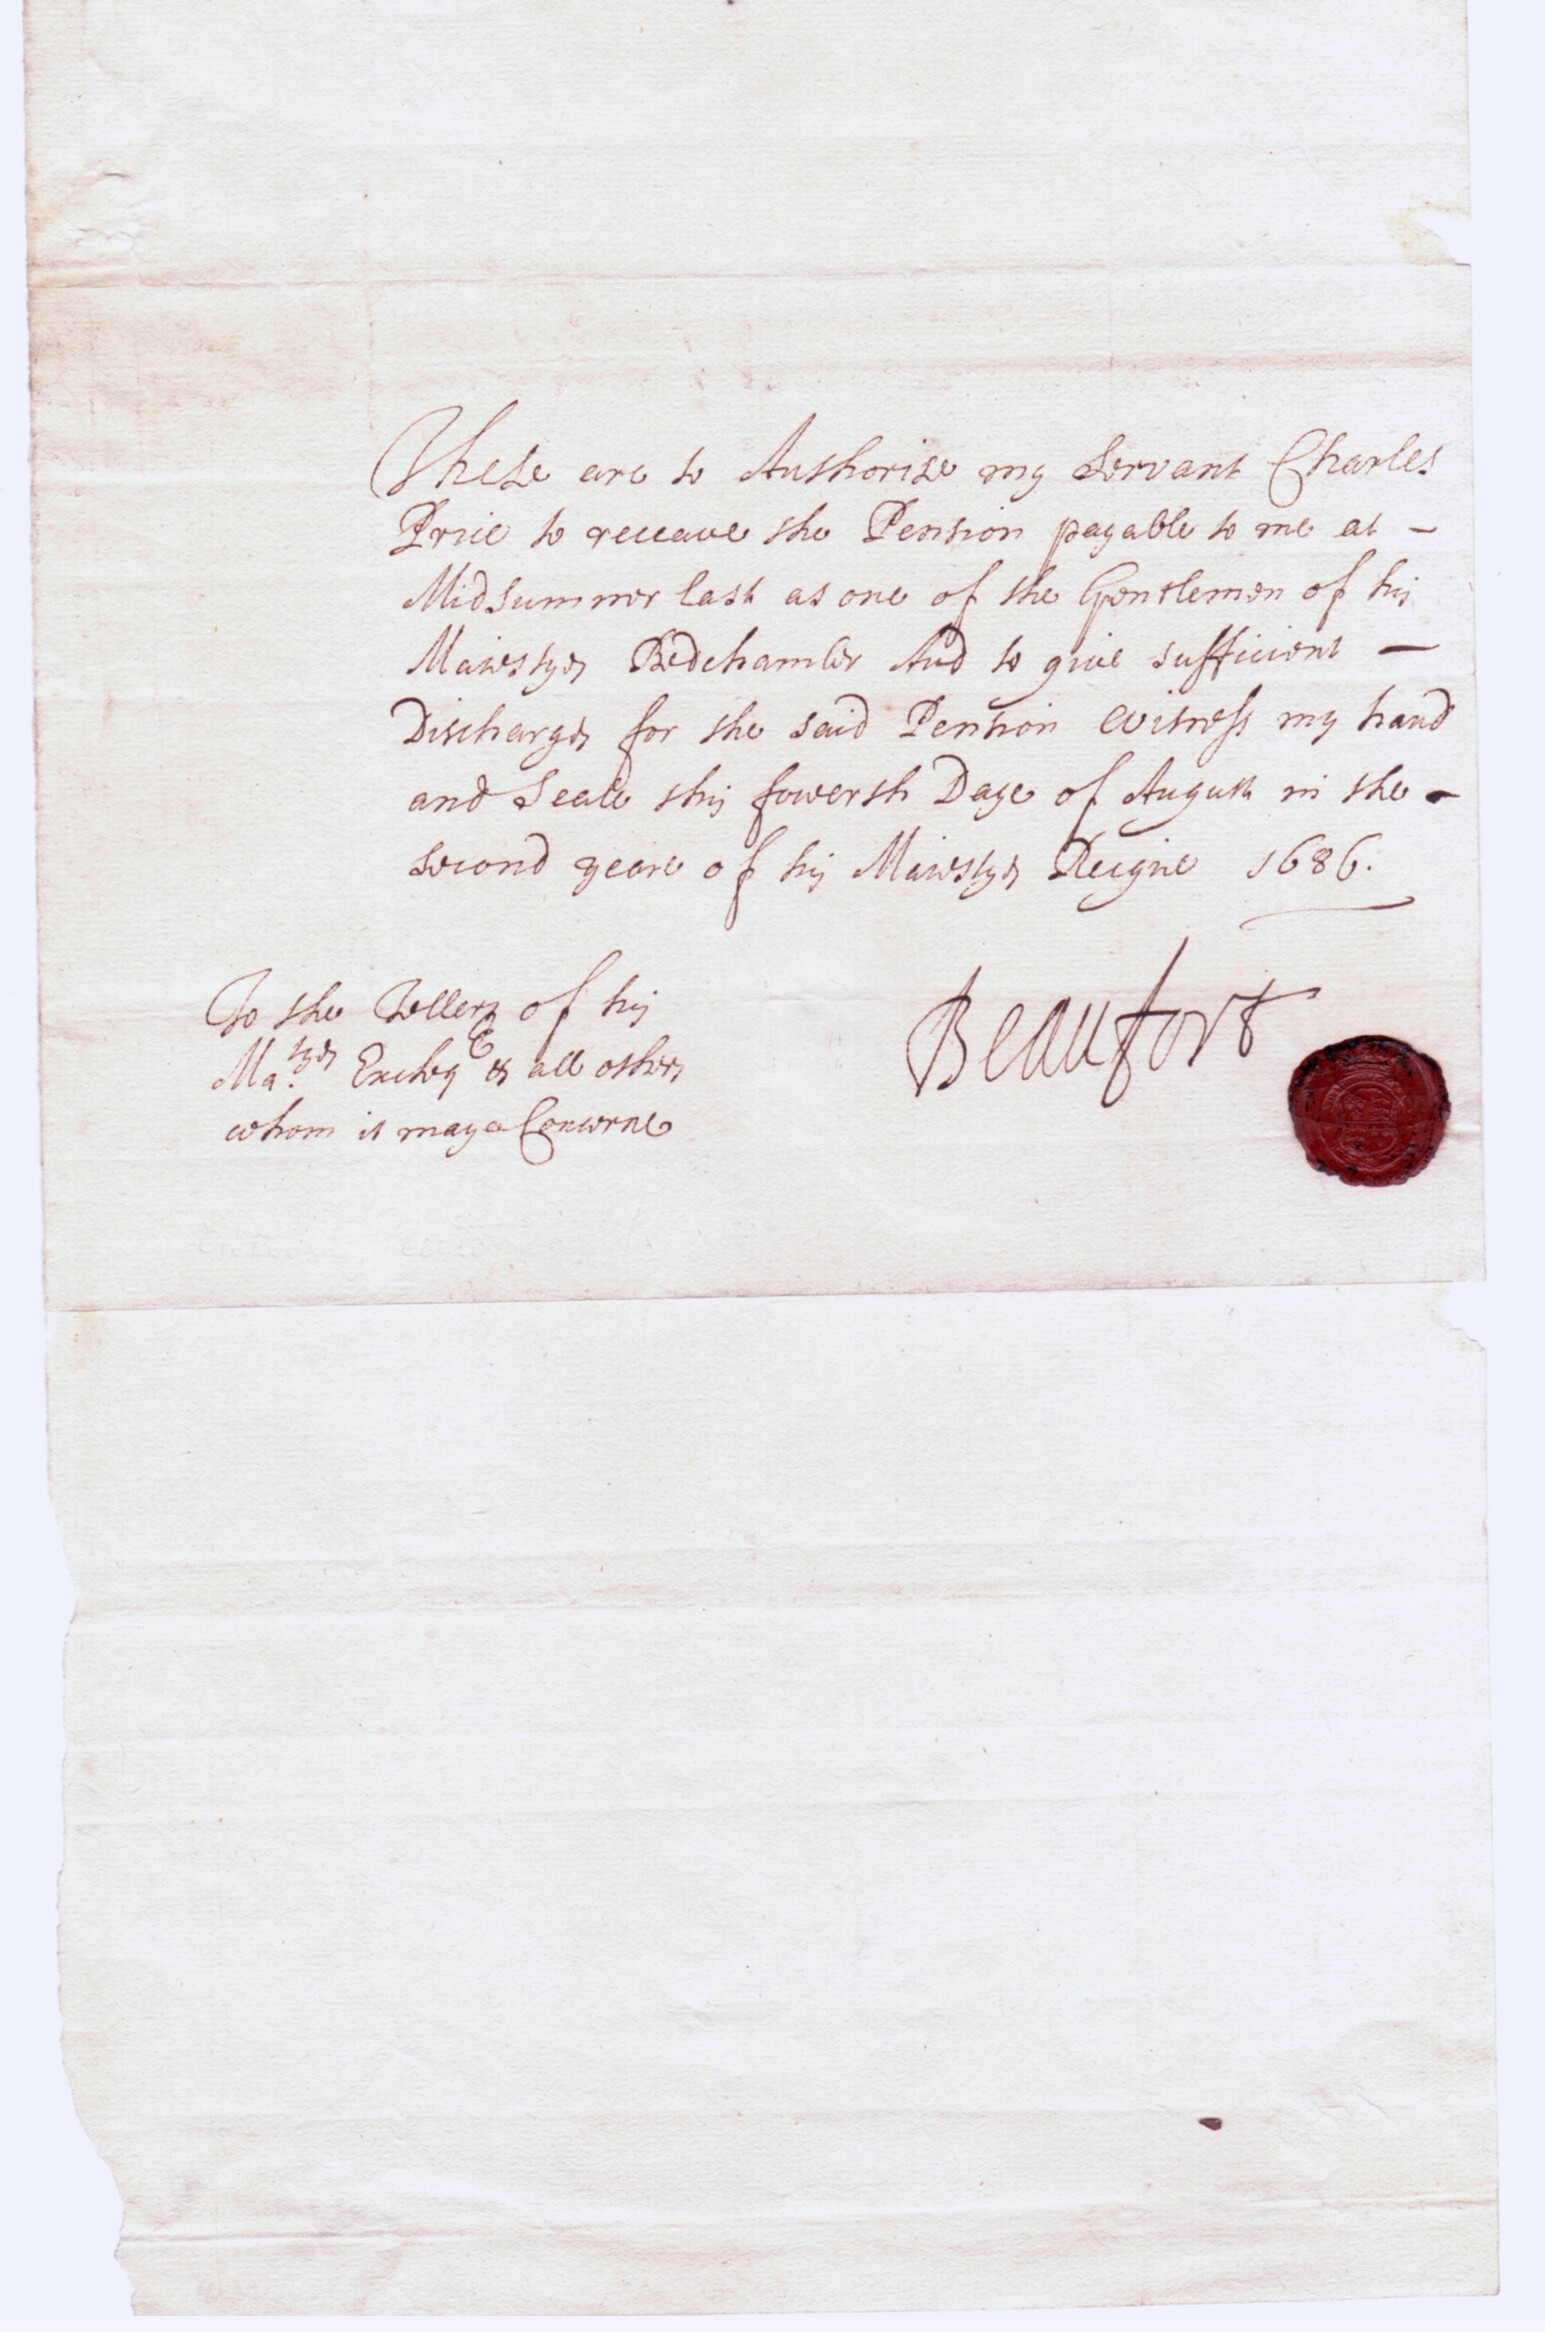 These are to Authorise my Servant Charles
Price to receave the Pension payable to me at -
Midsummer last as one of the Gentlemen of his
Majestyes Bedchamber And to give sufficient -
Discharges for the said Pension Witness my hand
and Seale this fowerth Daye of August in the -
second yeare of his Majestyes Reigne 1686.
To the Tellers of his
Ma.tyes Excheqr & all others
whom it maye Concerne
Beaufort